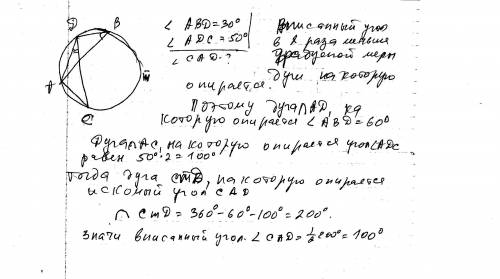 D B
A
C
m
∠ ABD = 30°
∠ ADC = 50°
∠ CAD - ?
Вписанный угол
в 2 раза меньше
градусной меры
дуги на которую
опирается.
Поэтому дуга AD, на
которую опирается ∠ ABD = 60°
Дуга AC, на которую опирается угол ∠ADC
равен 50°·2 = 100°
Тогда дуга CmD, на которую опирается
искомый угол CAD
∩ CmD = 360° - 60° - 100° = 200°.
Значи вписанный угол ∠ CAD = 1/2 200° = 100°